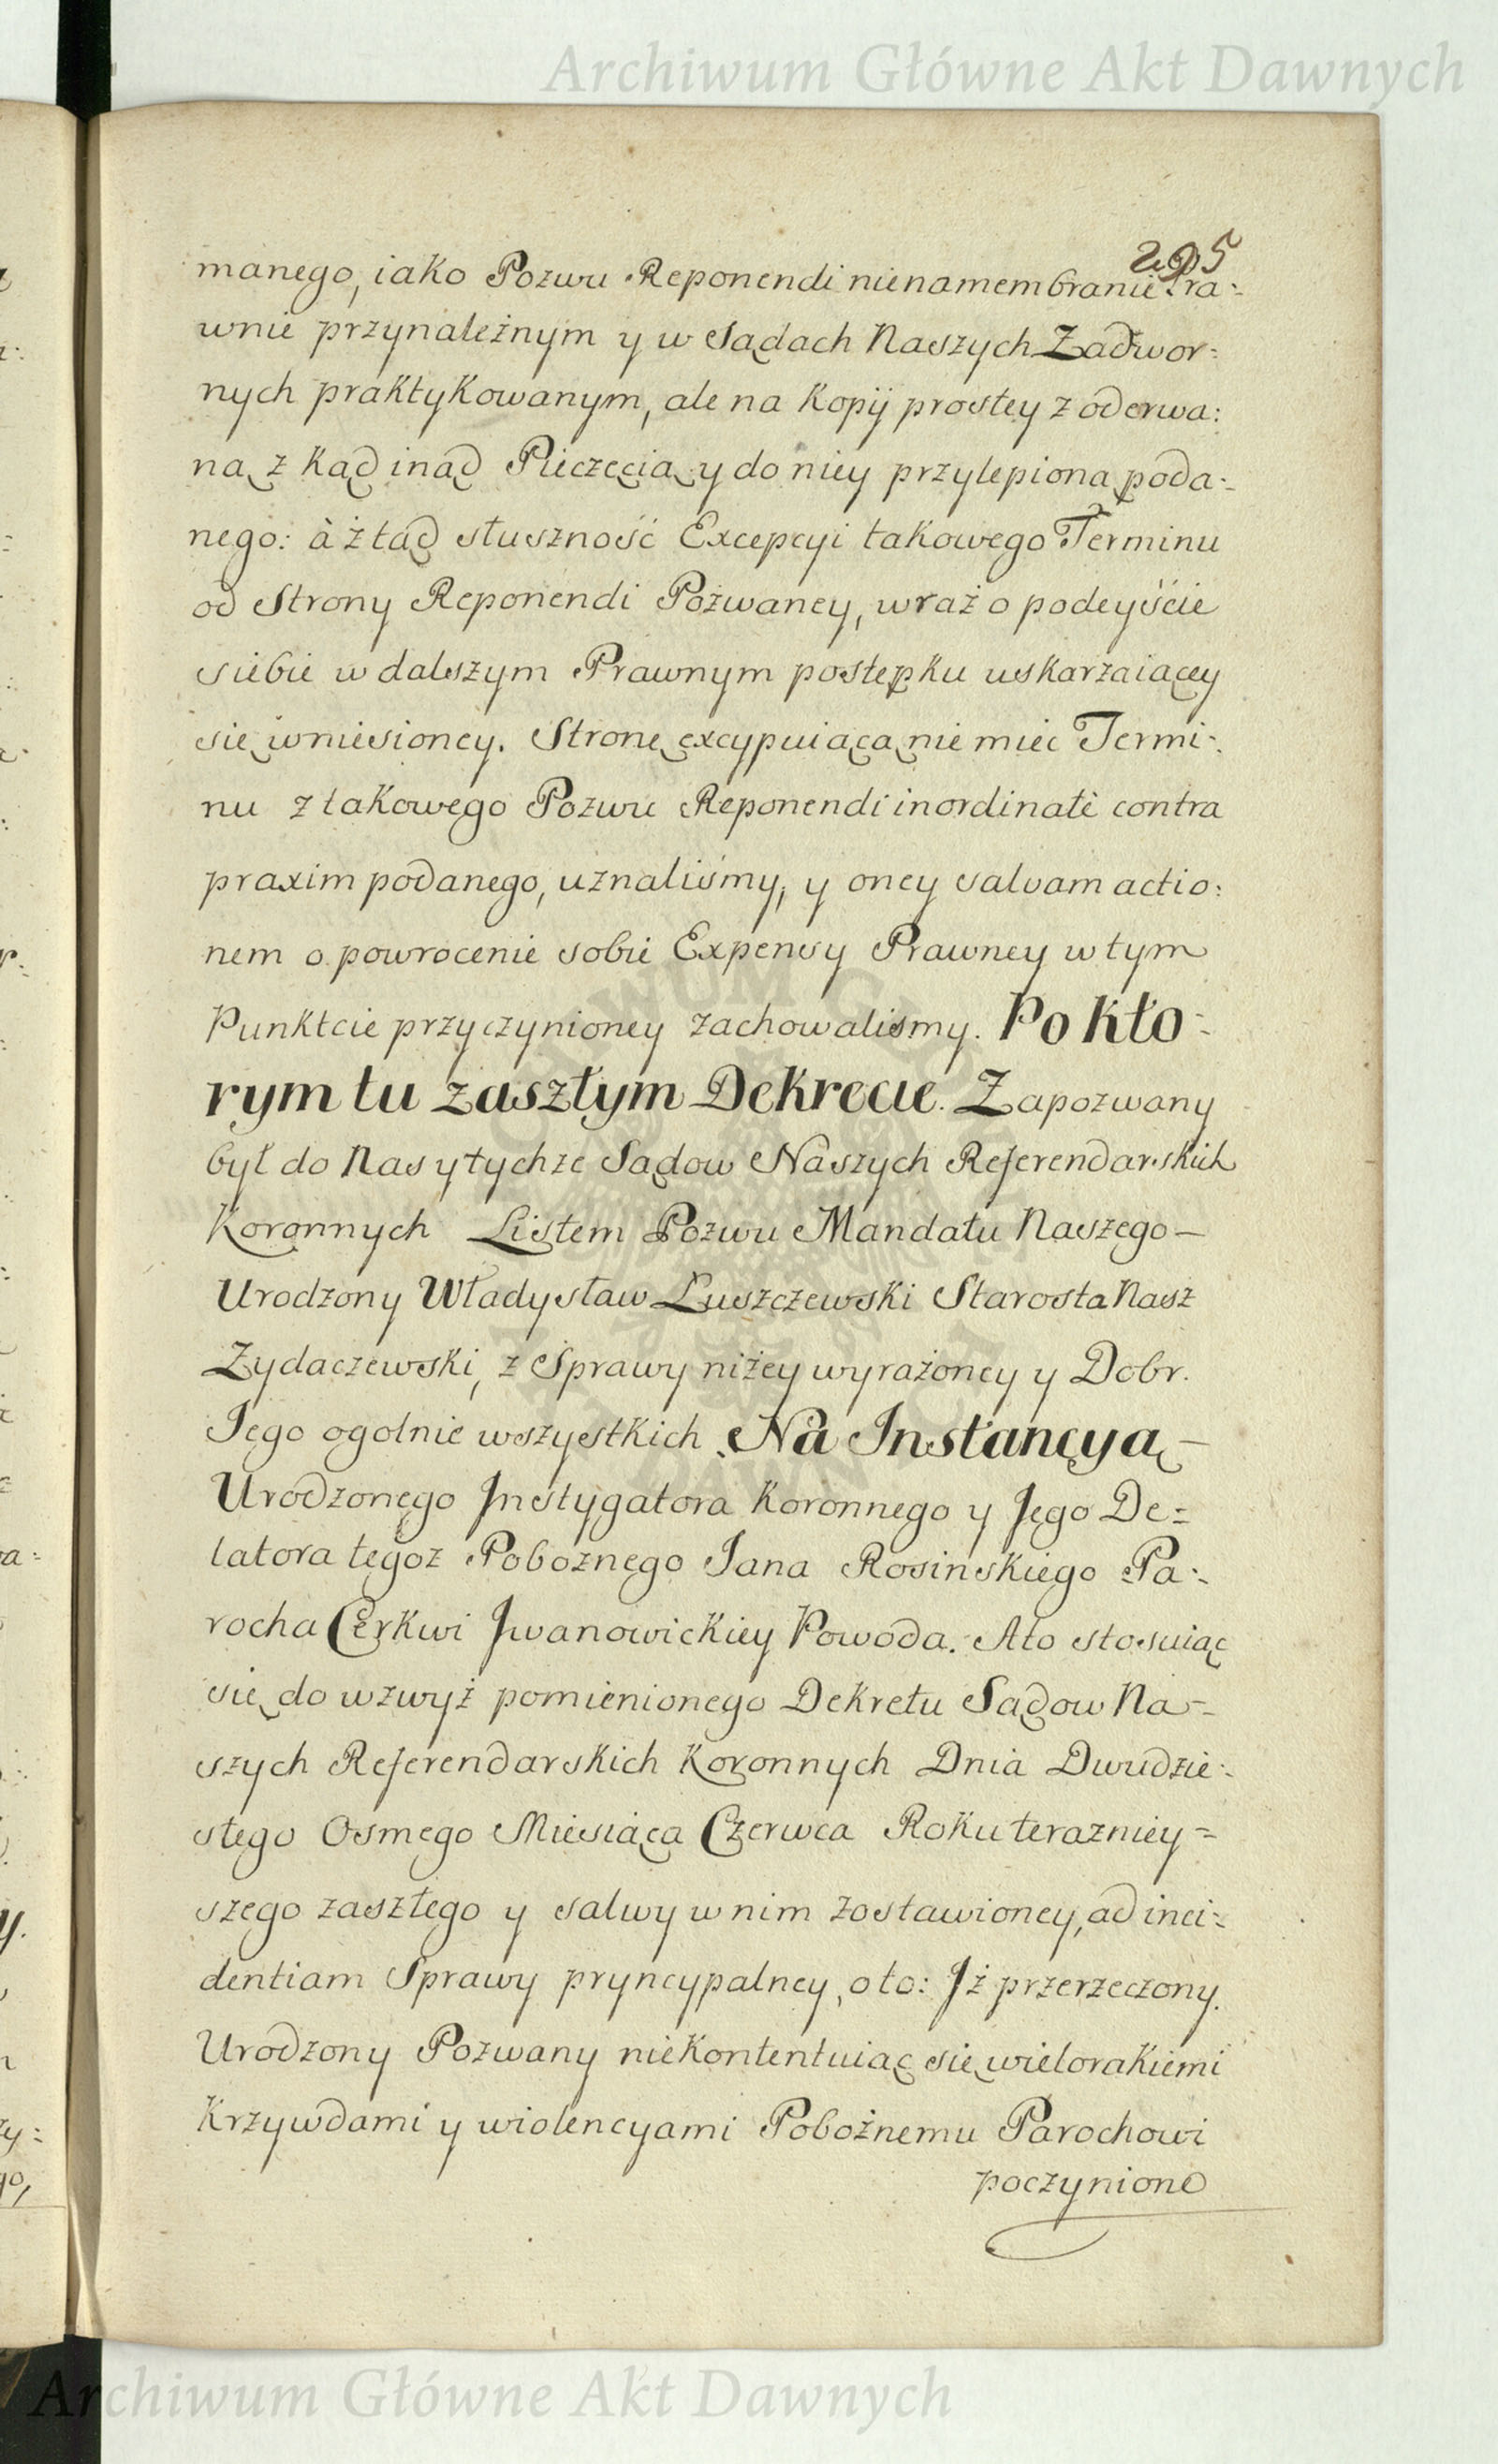 Archiwum Główne Akt Dawnych
205
manego, iako Pozwu Reponendi nie na membranie Pra:
wnie przynależnym y w Sądach Naszych Zadwor:
nych praktykowanym, ale na Kopij prostey z oderwa:
ną z kąd inąd Pieczęcią y do niey przylepioną poda:
nego: à ztąd słuszność Excepcyi takowego Terminu
od Strony Reponendi Pozwaney, wraz o podeyście
siebie w dalszym Prawnym postępku uskarzaiącey
się wniesioney. Stronę excypuiącą nie mieć Termi:
nu z takowego Pozwu Reponendi inordinatè contra
praxim podanego, uznaliśmy, y oney salvam actio:
nem o powrocenie sobie Expensy Prawney w tym
Punktcie przyczynioney zachowaliśmy. Po kto:
rym tu zaszłym Dekrecie. Zapozwany
był do Nas y tychże Sądow Naszych Referendarskich
Koronnych Listem Pozwu Mandatu Naszego —
Urodzony Władysław Łuszczewski Starosta Nasz
Zydaczewski, z Sprawy niżey wyrażoney y Dobr.
Jego ogolnie wszystkich Na Instancyą —
Urodzonego Instygatora Koronnego y Jego De=
latora tegoż Pobożnego Jana Rosinskiego Pa:
rocha Cerkwi Jwanowickiey Powoda. A to stosuiąc
się do wzwyż pomienionego Dekretu Sądow Na-
szych Referendarskich Koronnych Dnia Dwudzie:
stego Osmego Miesiąca Czerwca Roku terazniey=
szego zaszłego y salwy w nim zostawioney, ad inci:
dentiam Sprawy pryncypalney, o to: Jż przerzeczony.
Urodzony Pozwany niekontentuiąc się wielorakiemi
Krzywdami y wiolencyami Pobożnemu Parochowi
poczynione
Archiwum Główne Akt Dawnych